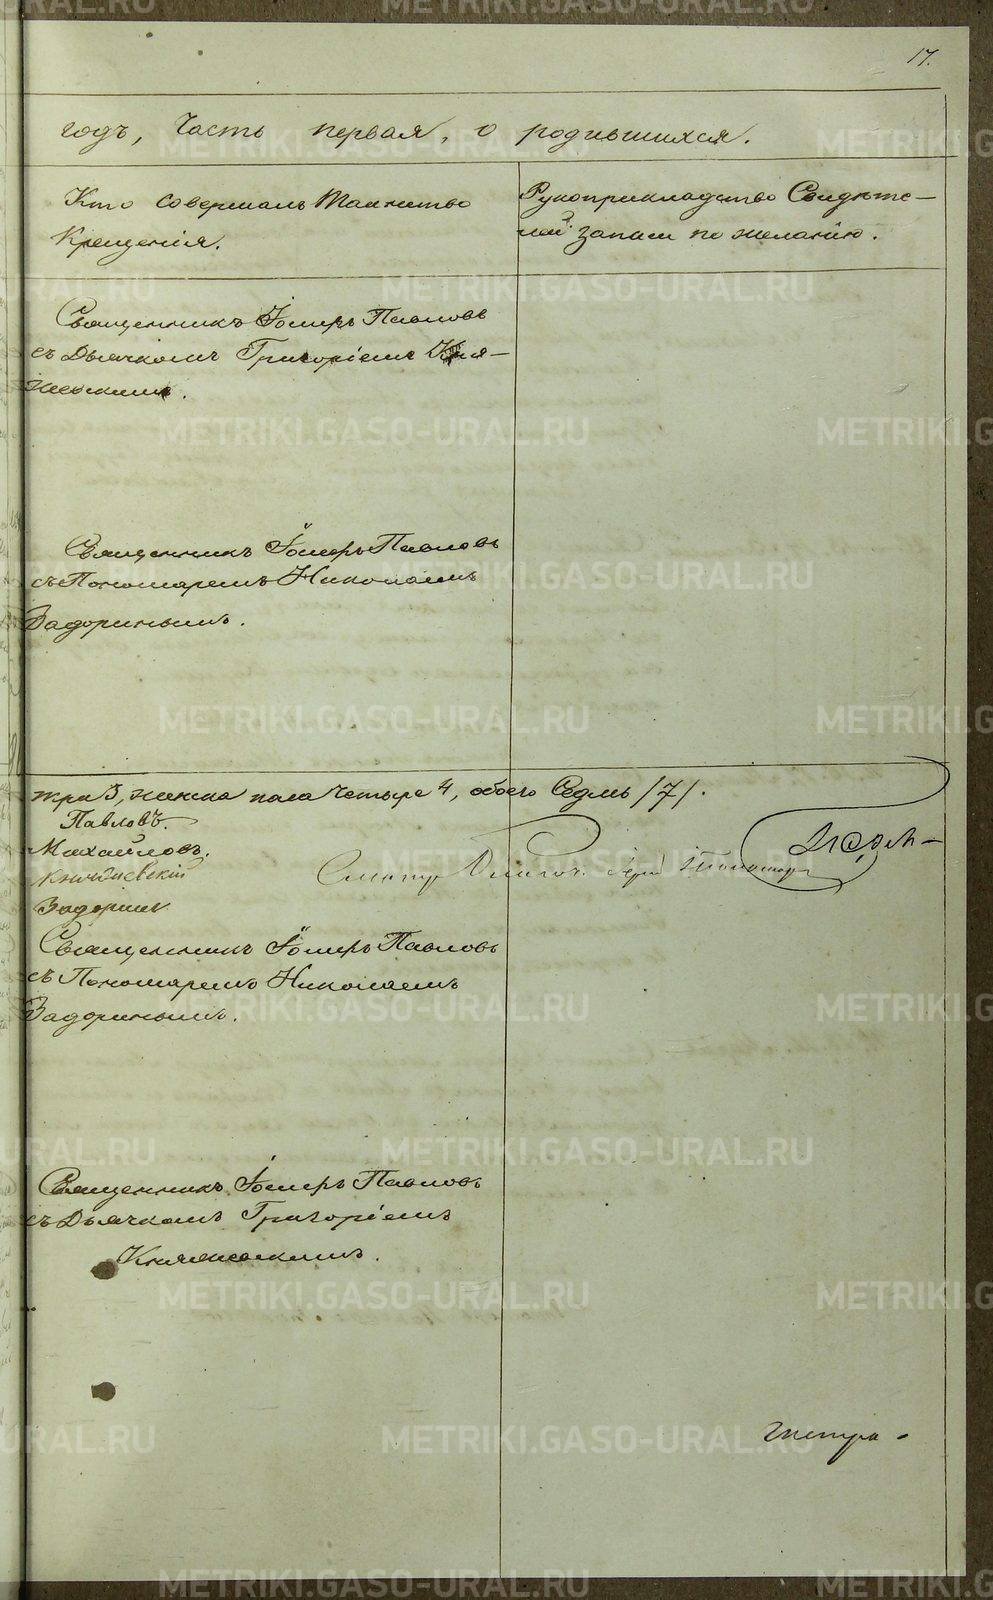 17.
годъ, Часть первая, о родившихся.
Кто совершалъ Таинство
Крещенія.
Рукоприкладство Свидѣте-
лей записи по желанію.
Священникъ Іоиль Павловъ
съ Дьячкомъ Григоріемъ Кня-
жевскимъ.
Священникъ Павловъ
съ Пономаремъ Николаемъ
Задоринымъ.
три 3, женска пола Четыре 4, обоего Седмь /7/.
Павловъ.
Михайловъ.
Задоринъ
Священникъ Павловъ
съ Пономаремъ Николаемъ
Задоринымъ.
Священникъ Павловъ
съ Дьячкомъ Григоріемъ
Княжевскимъ.
METRIKI.GASO-URAL.RU